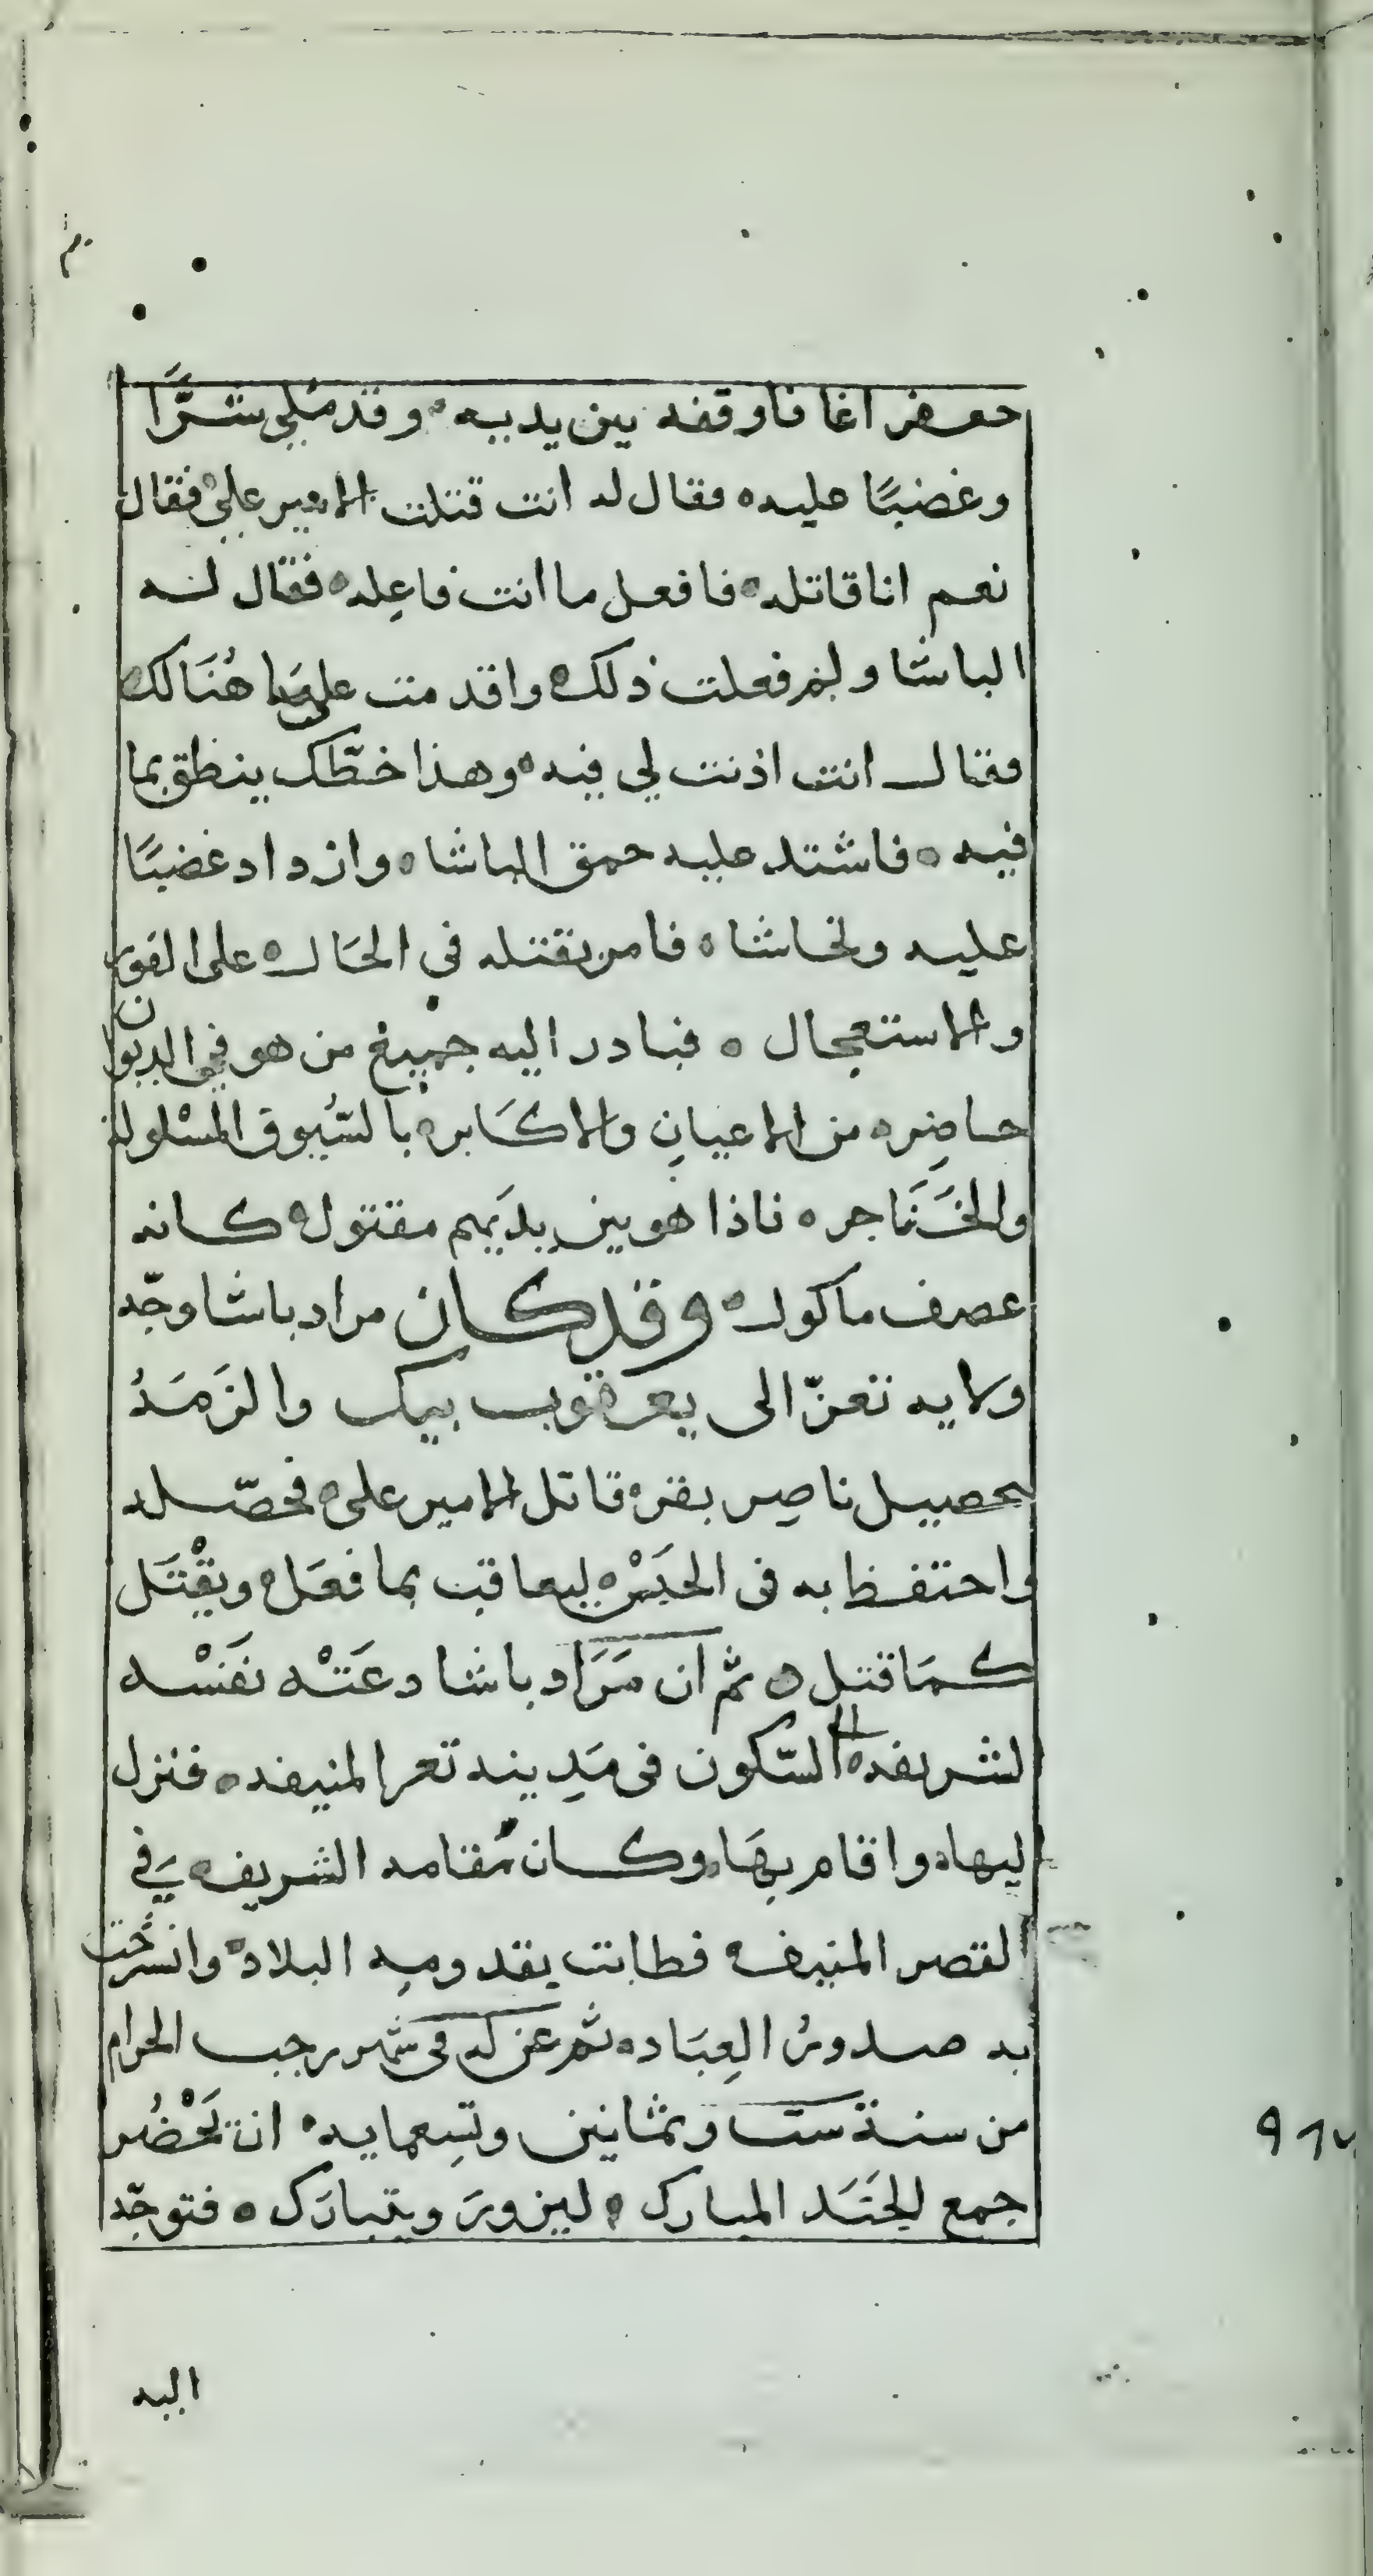 جعفر اغا فاوقفه بين يديه وقد ملي شرًّا
وغضبًا عليه فقال له انت قتلت الامير علي فقال
نعم انا قاتله فافعل ما انت فاعِله فقال لـه
الباشا ولِمَ فعلت ذلك واقدمت على ما هُنَالك
فقال انت اذنت لي فيه وهذا خطّك ينطق بما
فيه فاشتد عليه حمق الباشا وازداد غضبًا
عليه ولحاشا فامر بقتله في الحَال على الفور
والاستعجال فبادر اليه جميع من هو في الديوان
حاضِر من الاعيانِ والاكَابر بالسُّيوف المسْلولة
والخَنَاجر فاذا هو بين يديهم مقتول كانه
عصف ماكول وقد كان مراد باشا وجّه
ولايه تعزّ الى يعقوب بيك والزَمَهُ
بحصيل ناصِر بقره قاتل الامير علي فحصّله
واحتفظ به فى الحبَسْ ليعاقب بما فعَل ويقْتَل
كمَا قتل ثم ان مَرَاد باشا دعَتْه نفَسْه
لشريفه الى السّكون فى مَدِينه تعز المنيفه فنزل
ليها واقام بهَا وكان مُقامه الشريف في
القصر المنيف فطابت بقدومِه البلاد وانشرحت
به صدورُ العِبَاد ثم عزَ له فى شهر رجب الحرام
من سنة ست وثمانين وتسِعمايه ان يَحْضُر
جمع الجَنَد المبارك ليزورَ ويتبارَك فتوجّه
اليه